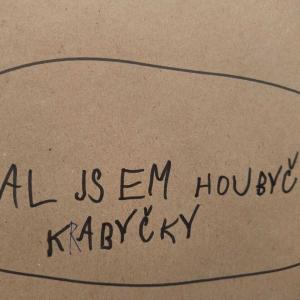 AL JSEM HOUBYČ
KRABYČKY